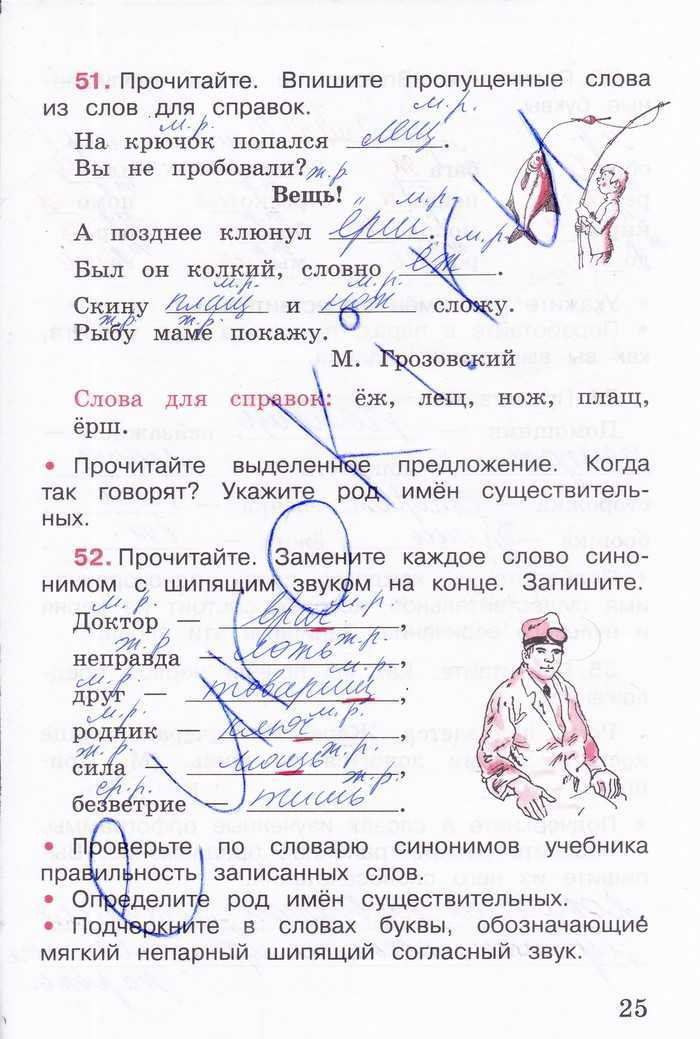 51. Прочитайте. Впишите пропущенные слова
из слов для справок.
м.р.
м.р.
На крючок попался лещ.
Вы не пробовали? ж.р.
Вещь!
м.р.
А позднее клюнул ёрш.
м.р.
Был он колкий, словно ёж.
м.р. м.р.
Скину плащ и нож сложу.
ж.р. ж.р.
Рыбу маме покажу.
М. Грозовский
Слова для справок: ёж, лещ, нож, плащ,
ёрш.
• Прочитайте выделенное предложение. Когда
так говорят? Укажите род имён существитель-
ных.
52. Прочитайте. Замените каждое слово сино-
нимом с шипящим звуком на конце. Запишите.
м.р. м.р.
Доктор — врач,
ж.р. ж.р.
неправда — ложь,
м.р. м.р.
друг — товарищ,
м.р. м.р.
родник — ключ,
ж.р. ж.р.
сила — мощь,
ср.р. ж.р.
безветрие — тишь.
• Проверьте по словарю синонимов учебника
правильность записанных слов.
• Определите род имён существительных.
• Подчеркните в словах буквы, обозначающие
мягкий непарный шипящий согласный звук.
25